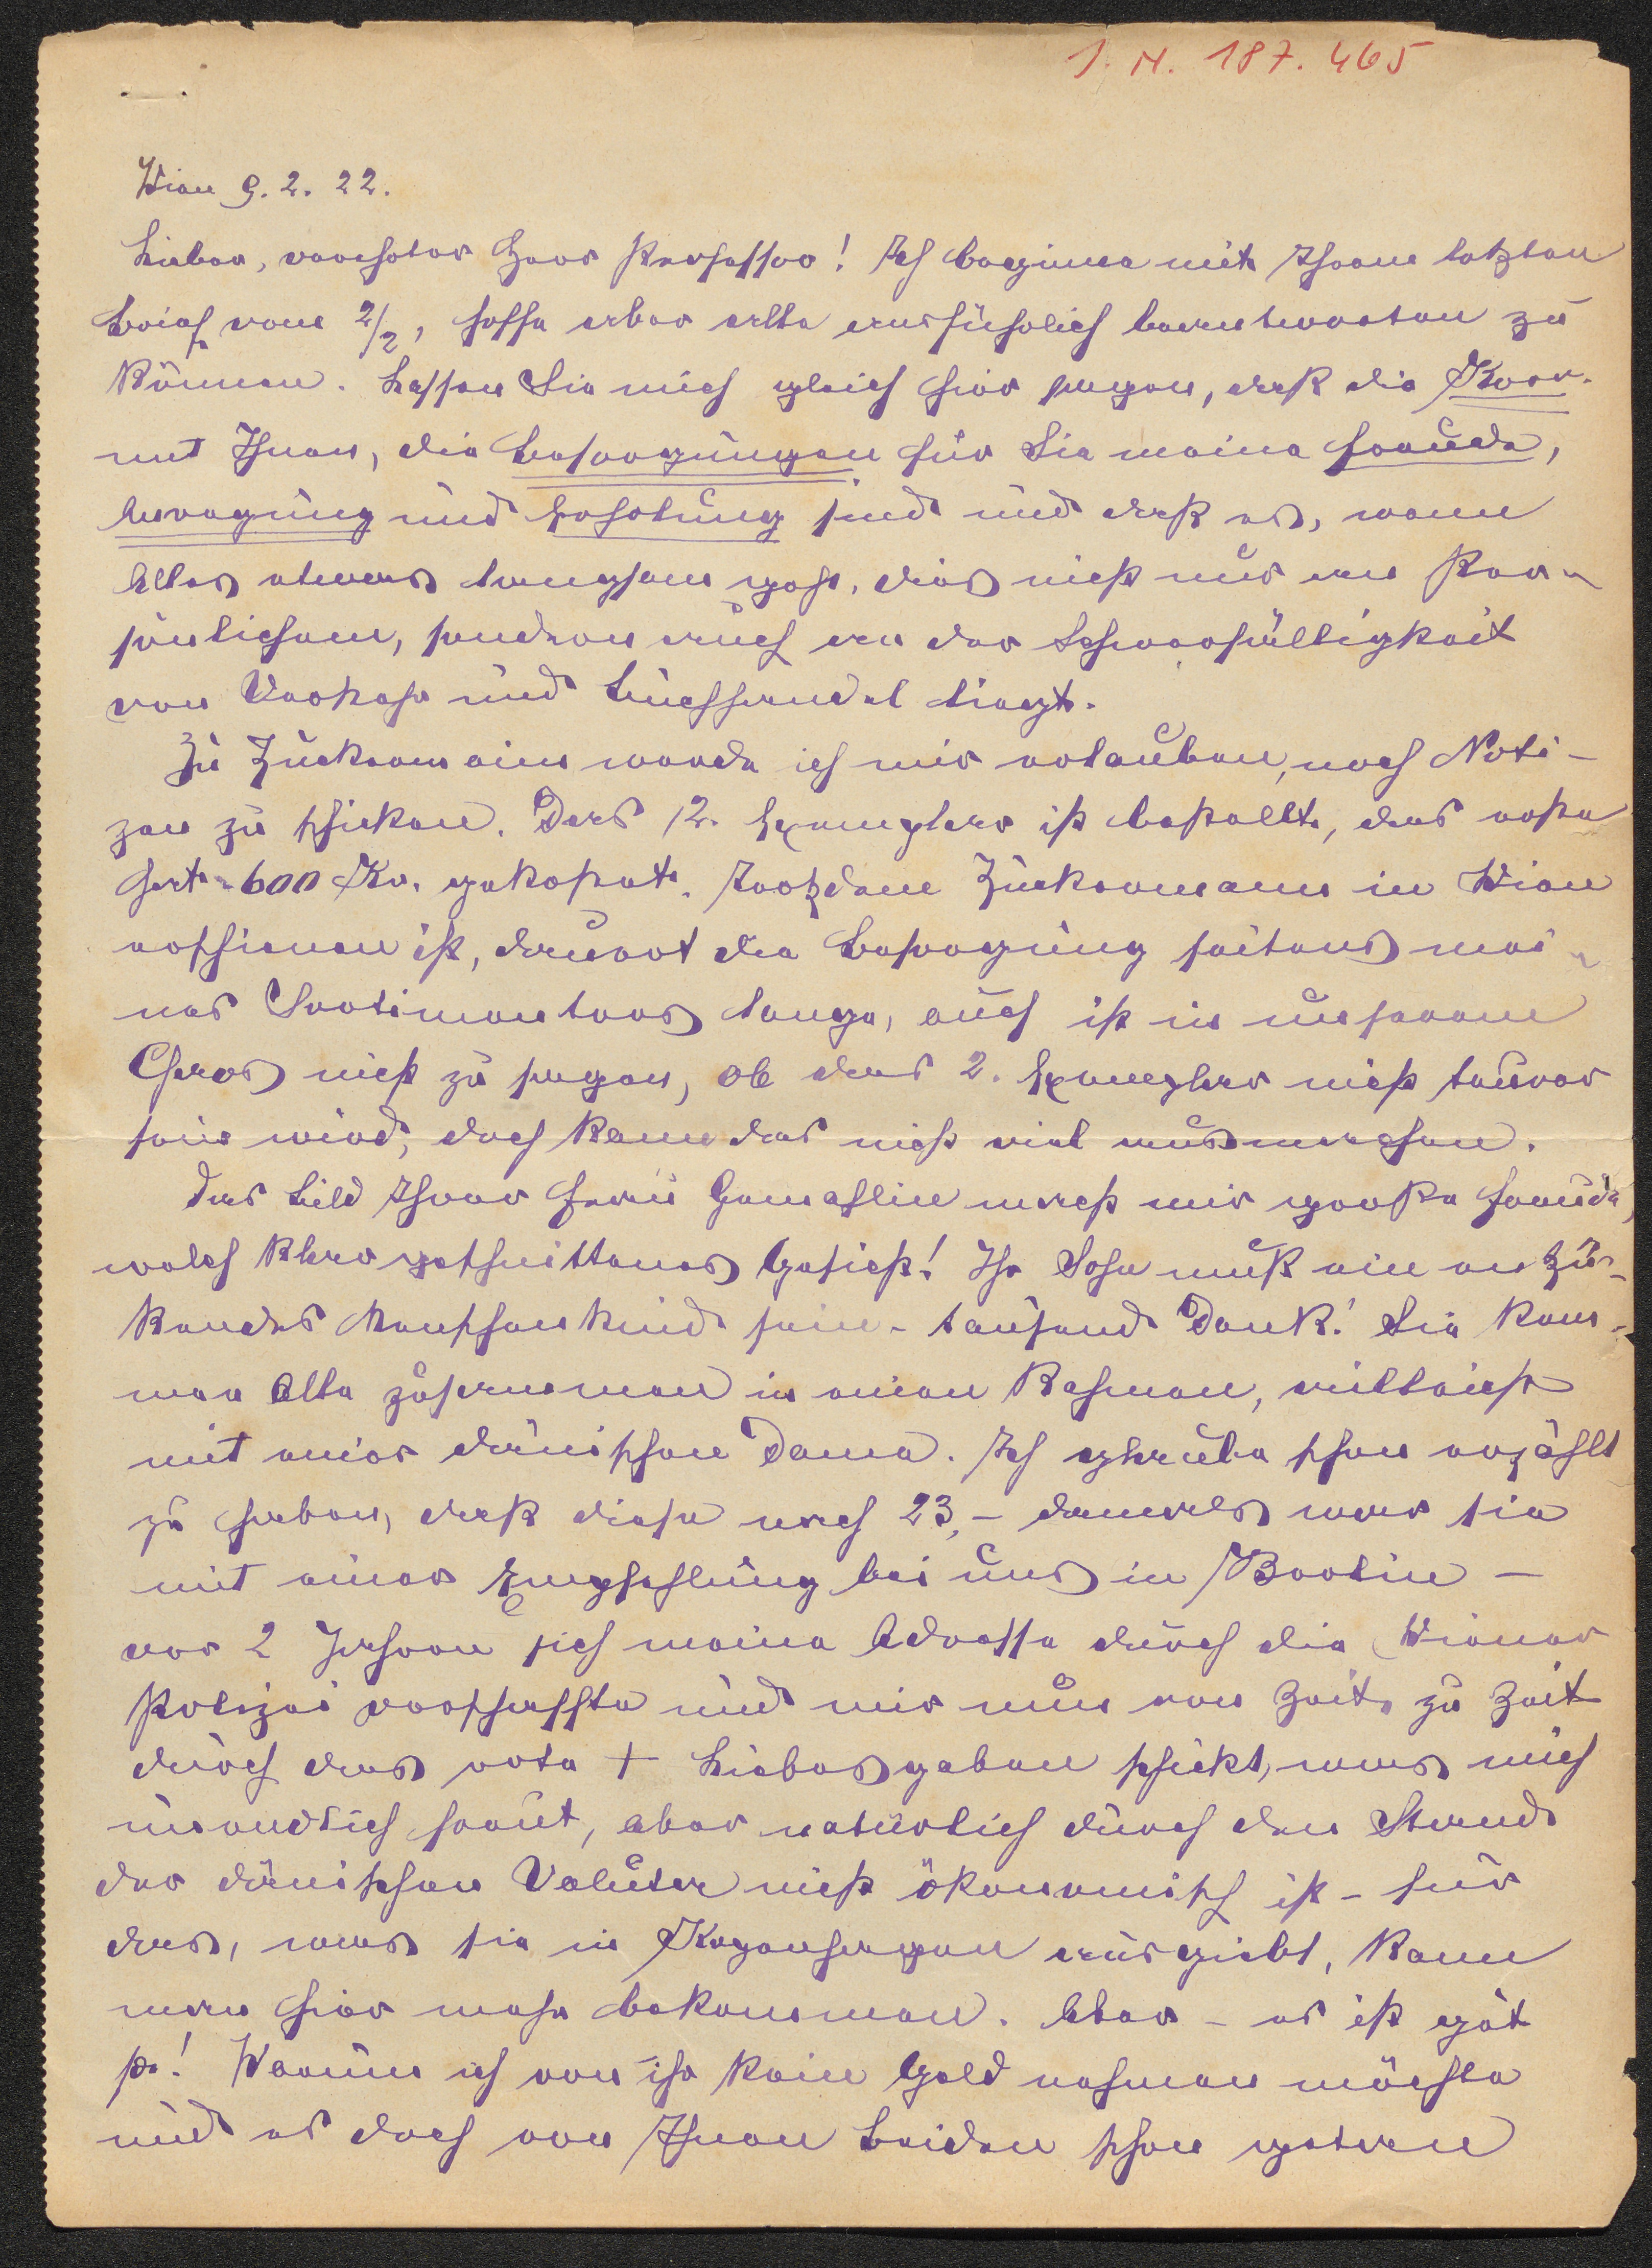 I. N. 187.465
Wien 9. 2. 22.
Lieber, verehrter Herr Professor! Ich beginne mit Ihrem letzten
Brief vom 2/2, hoffe aber alle ausführlich beantworten zu
können. Lassen Sie mich gleich hier sagen, daß die Korr.
mit Ihnen, die Besorgungen für Sie meine Freude,
Anregung und Erholung sind und daß es, wenn
Alles etwas langsam geht, dies nicht nur am Per-
sönlichem, sondern auch an der Schwerfälligkeit
von Verkehr und Buchhandel liegt.
Zu Zuckermann werde ich mir erlauben, noch Noti-
zen zu schicken. Das 2. Exemplar ist bestellt, das erste
hat 600 Kr. gekostet. Trotzdem Zuckermann in Wien
erschienen ist, dauert die Besorgung seitens mei-
nes Sortimenters lange, auch ist in unserem
Chaos nicht zu sagen, ob das 2. Exemplar nicht teurer
sein wird, doch kann das nicht viel ausmachen.
Das Bild Ihrer Frau Gemahlin macht mir große Freude,
welch klar geschnittenes Gesicht! Ihr Sohn muß ein entzü-
kendes Menschenkind sein - tausend Dank! Sie kom-
men Alle zusammen in einen Rahmen, vielleicht
mit einer dänischen Dame. Ich glaube schon erzählt
zu haben, daß diese nach 23, - damals war sie
mit einer Empfehlung bei uns in Berlin -
vor 2 Jahren sich meine Adresse durch die Wiener
Polizei verschaffte und mir nun von Zeit zu Zeit
durch das rote + Liebesgaben schickt, was mich
unendlich freut, aber natürlich durch den Stand
der dänischen Valuta nicht ökonomisch ist - für
das, was sie in Kopenhagen ausgiebt, kann
man hier mehr bekommen. Aber - es ist gut
so! Warum ich von ihr kein Geld nehmen möchte
und es doch von Ihnen Beiden schon getan